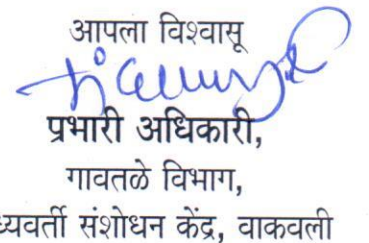 आपला विश्वासू
प्रभारी अधिकारी,
गावतळे विभाग,
ध्यवर्ती संशोधन केंद्र, वाकवली